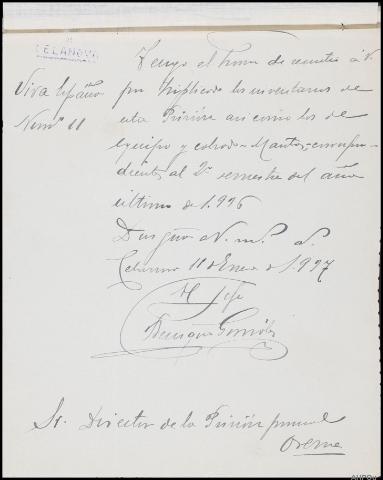 CELANOVA
Viva España
Num. 11
Tengo el honor de remitir á V.
por triplicado los inventarios de
esta Prisión asi como los de
equipo y
correspon-
dientes al 2º semestre del año
último de 1.936
Dios gue. á V. m.s a.s
Celanova 11 de Enero de 1.937
El Jefe
Sr. Director de la Prisión provincial
Orense